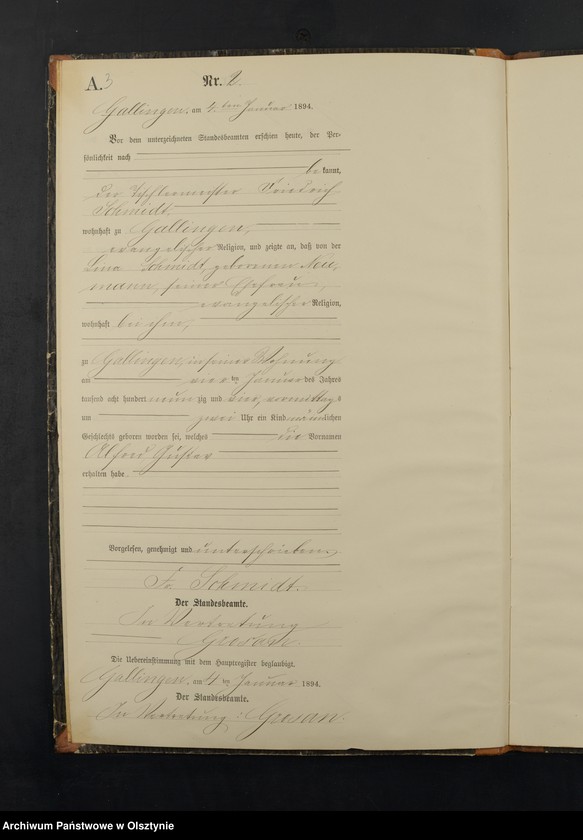 A. 3 Nr. 2.
Gallingen, am 4 ten Januar 1894.
Vor dem unterzeichneten Standesbeamten erschien heute, der Per-
sönlichkeit nach
bekannt,
der Tischlermeister Friedrich
Schmidt,
wohnhaft zu Gallingen,
evangelischer Religion, und zeigte an, daß von der
Lina Schmidt, geborenen Neu-
mann, seiner Ehefrau,
evangelischer Religion,
wohnhaft bei ihm,
zu Gallingen, in seiner Wohnung
am vier ten Januar des Jahres
tausend acht hundert neun zig und vier, vormittags
um zwei Uhr ein Kind männlichen
Geschlechts geboren worden sei, welches die Vornamen
Alfred Gustav
erhalten habe.
Vorgelesen, genehmigt und unterschrieben.
Fr. Schmidt.
Der Standesbeamte.
In Vertretung
Die Uebereinstimmung mit dem Hauptregister beglaubigt.
Gallingen, am 4 ten Januar 1894.
Der Standesbeamte.
In Vertretung:
Archiwum Państwowe w Olsztynie